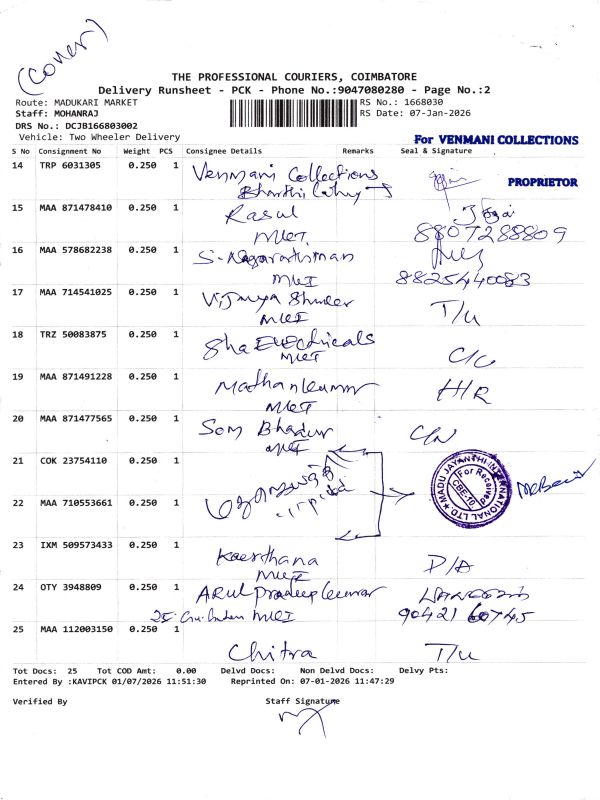 (Cover)
THE PROFESSIONAL COURIERS, COIMBATORE
Delivery Runsheet - PCK - Phone No.:9047080280 - Page No.:2
Route: MADUKARI MARKET
RS No.: 1668030
Staff: MOHANRAJ
RS Date: 07-Jan-2026
DRS No.: DCJB166803002
Vehicle: Two Wheeler Delivery
For VENMANI COLLECTIONS
S No Consignment No Weight PCS Consignee Details Remarks Seal & Signature
14 TRP 6031305 0.250 1 Venmani Collections
PROPRIETOR
15 MAA 871478410 0.250 1 Rasul
MKT 8807288809
16 MAA 578682238 0.250 1
MKT 8825440083
17 MAA 714541025 0.250 1 T/U
MKT
18 TRZ 50083875 0.250 1 Sha Electricals
MKT
19 MAA 871491228 0.250 1 Mathankumar H/R
MKT
20 MAA 871477565 0.250 1 Som Bhadur
MKT
21 COK 23754110 0.250 1
MADU JAYANTHI INTERNATIONAL LTD
For Receive
CBE-10
22 MAA 710553661 0.250 1
23 IXM 509573433 0.250 1 Keerthana D/A
MKT
24 OTY 3948809 0.250 1 Arul Pradeep Kumar
MKT 90421 60745
25 MAA 112003150 0.250 1 Chitra T/U
Tot Docs: 25 Tot COD Amt: 0.00 Delvd Docs: Non Delvd Docs: Delvy Pts:
Entered By :KAVIPCK 01/07/2026 11:51:30 Reprinted On: 07-01-2026 11:47:29
Verified By Staff Signature